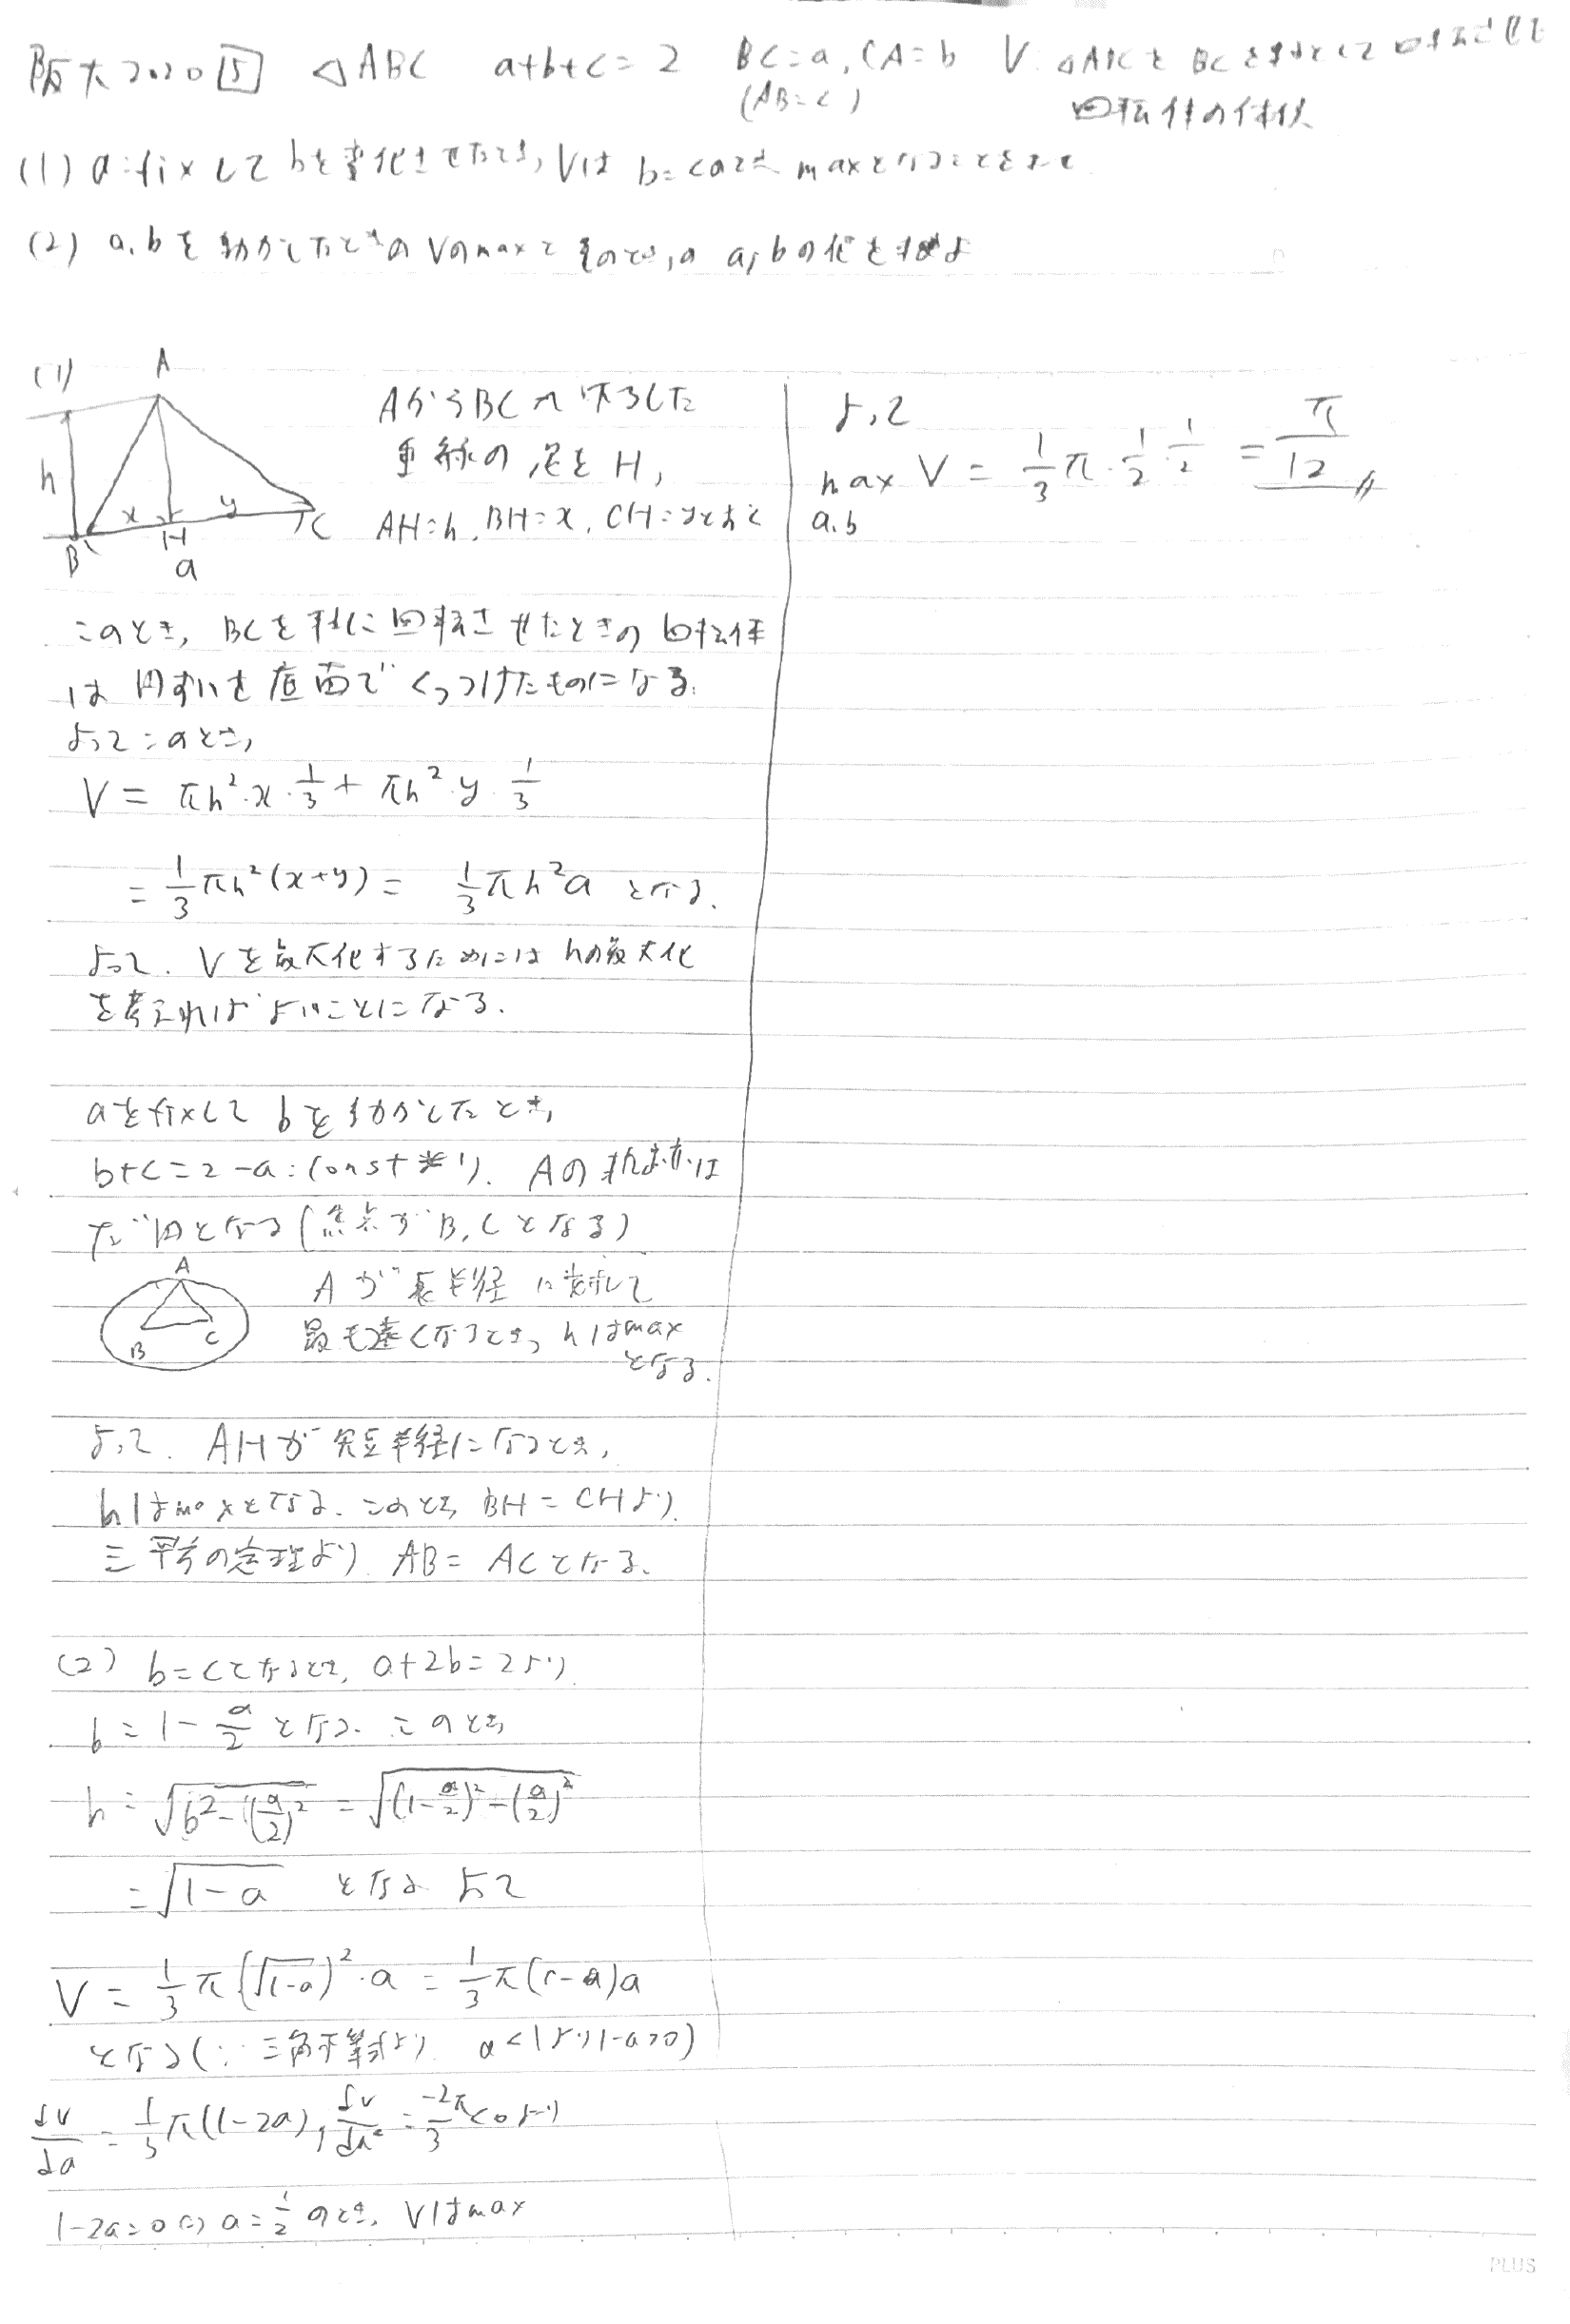 阪大2020 5 △ABC a+b+c=2 BC=a, CA=b V: △ABCをBCを軸として回転させた
(AB=c) 回転体の体積
(1) a:fixしてbを変化させたとき, Vはb=cのときmaxとなることを示せ
(2) a,bを動かしたときのVのmaxとそのときのa,bの値を求めよ
(1)
A
h
x
y
B
H
C
a
AからBCへ下ろした
垂線の足をH,
AH=h, BH=x, CH=yとおく
このとき, BCを軸に回転させたときの回転体
は円すいを底面でくっつけたものになる.
よってこのとき,
V = πh²・x・1/3 + πh²・y・1/3
= 1/3 πh²(x+y) = 1/3 πh²a となる.
よって, Vを最大化するためにはhの最大化
を考えればよいことになる.
aをfixしてbを動かしたとき,
b+c=2-a:constより, Aの軌跡は
だ円となる(焦点がB,Cとなる)
A
B
C
Aが長半径に対して
最も遠くなるとき, hはmax
となる.
よって, AHが短半径になるとき,
hはmaxとなる. このとき BH=CHより
三平方の定理より AB=ACとなる.
(2) b=cとなるとき, a+2b=2より
b=1-a/2 となる. このとき
h=√(b²-(a/2)²) = √((1-a/2)²-(a/2)²)
=√(1-a) となる よって
V = 1/3 π(√(1-a))²・a = 1/3 π(1-a)a
となる(∵三角不等式より a<1より1-a>0)
dV/da = 1/3 π(1-2a), dV/da² = -2π/3 <0より
1-2a=0⇔a=1/2のとき, Vはmax
よって
max V = 1/3 π・1/2・1/2 = π/12
a,b
PLUS